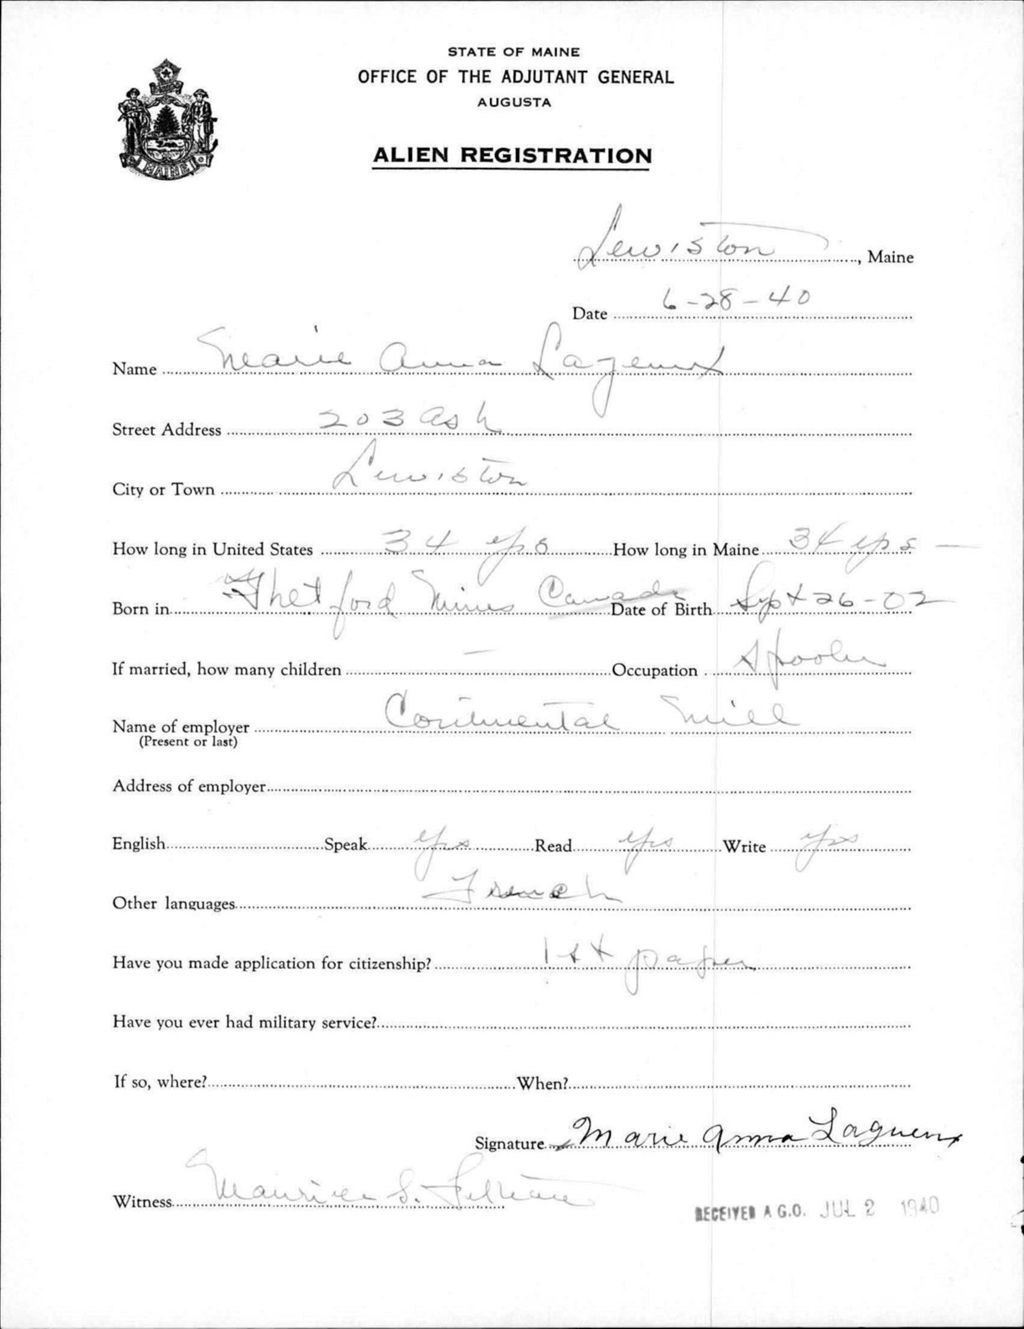 STATE OF MAINE
OFFICE OF THE ADJUTANT GENERAL
AUGUSTA
ALIEN REGISTRATION
MAINE
Lewiston, Maine
Date 6-28-40
Name Marie Anna Lageux
Street Address 203 Ash
City or Town Lewiston
How long in United States 34 yrs How long in Maine 34 yrs -
Born in Thetford Mines Canada Date of Birth Sept 26-02
If married, how many children - Occupation Spooler
Name of employer Continental Mill
(Present or last)
Address of employer
English Speak yes Read yes Write yes
Other languages French
Have you made application for citizenship? 1st paper
Have you ever had military service?
If so, where? When?
Signature Marie Anna Lagueux
Witness Maurice S.
RECEIVED A.G.O. JUL 2 1940